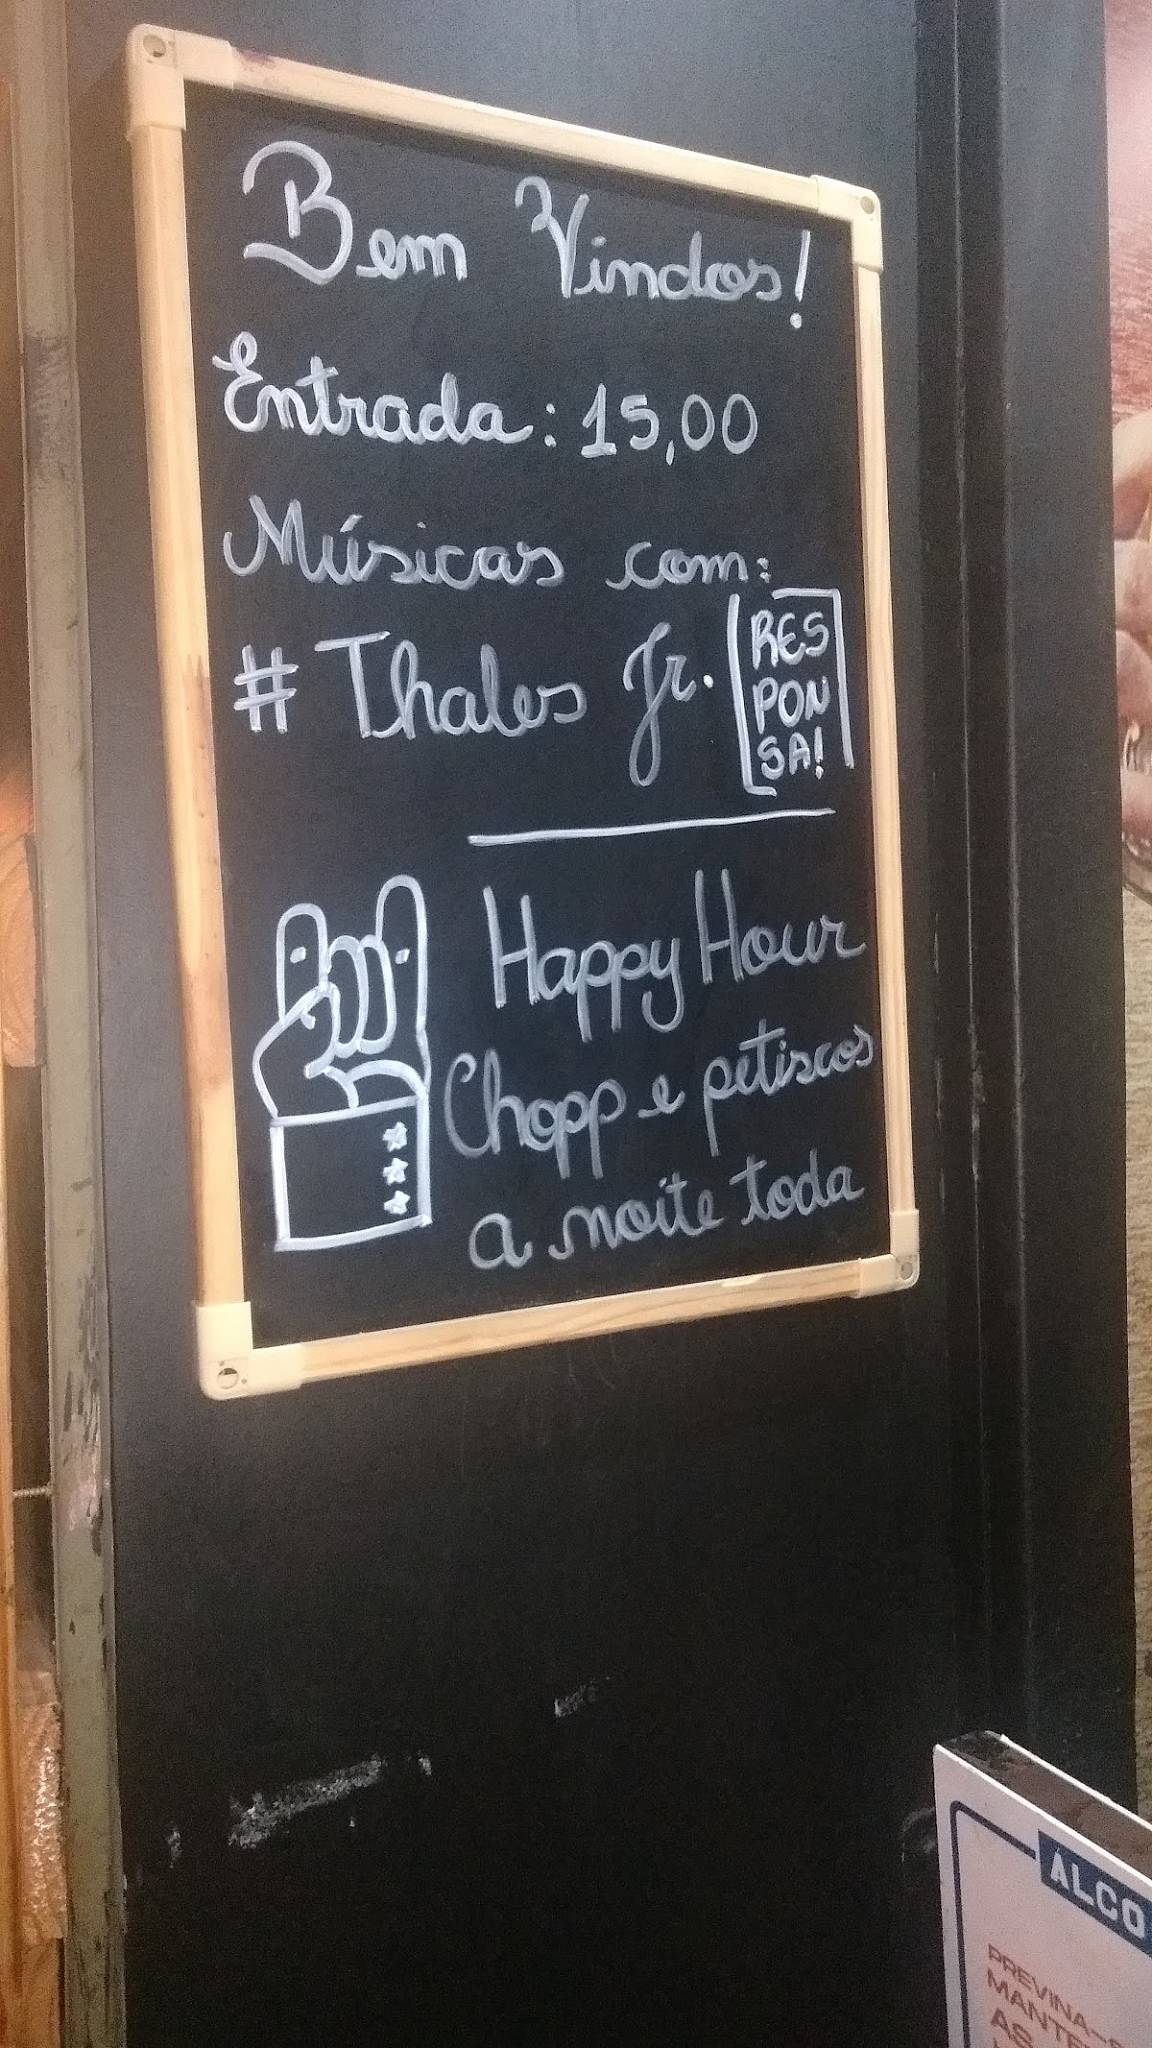 Bem Vindos!
Entrada: 15,00
Músicas com:
# Thales Jr.
RES
PON
SA!
Happy Hour
Chopp e petiscos
a noite toda
ÁLCO
PREVINA-S
MANTE
AS